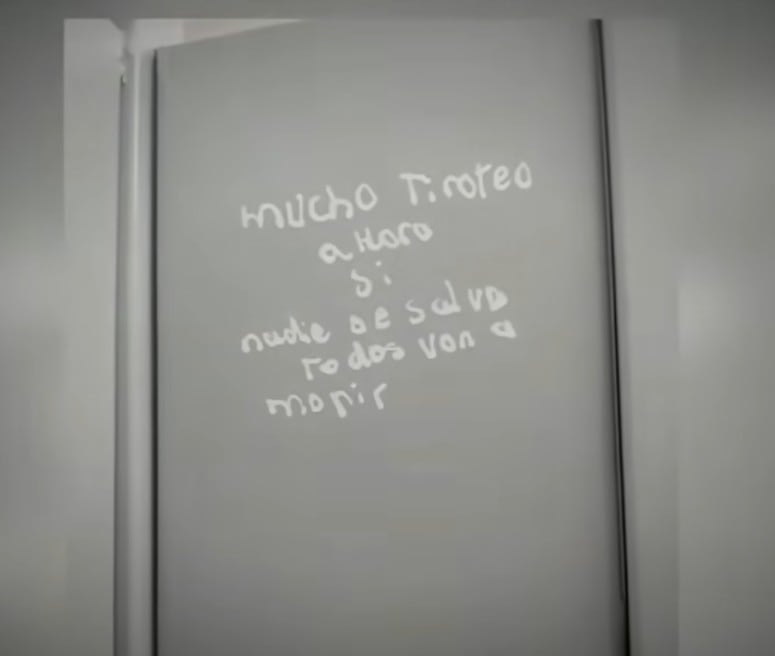 mucho Tiroteo
aHora
si
nadie se salva
Todos van a
morir